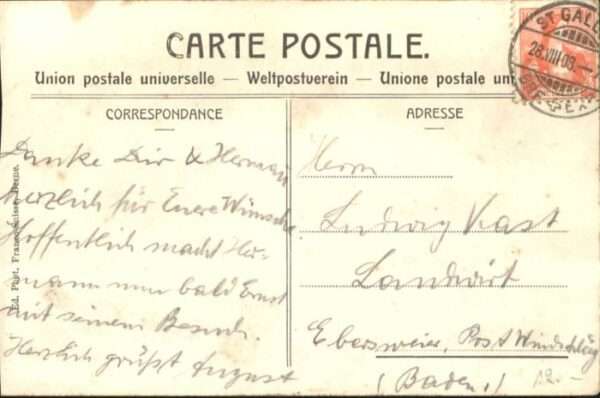 CARTE POSTALE.
Union postale universelle — Weltpostverein — Unione postale un
CORRESPONDANCE
ADRESSE
Danke Dir & Herman
herzlich für Euere Wünsche
Hoffentlich macht Her-
mann nun bald Ernst
mit seinem Besuch.
Herzlich grüßt August
Herrn
Ludwig Kast
Landwirt
Ebersweier, Post Windschläg
(Baden.)
12.-
ST GALL
28.VIII.08
Ed. Phot. Franco-Suisse, Berne.